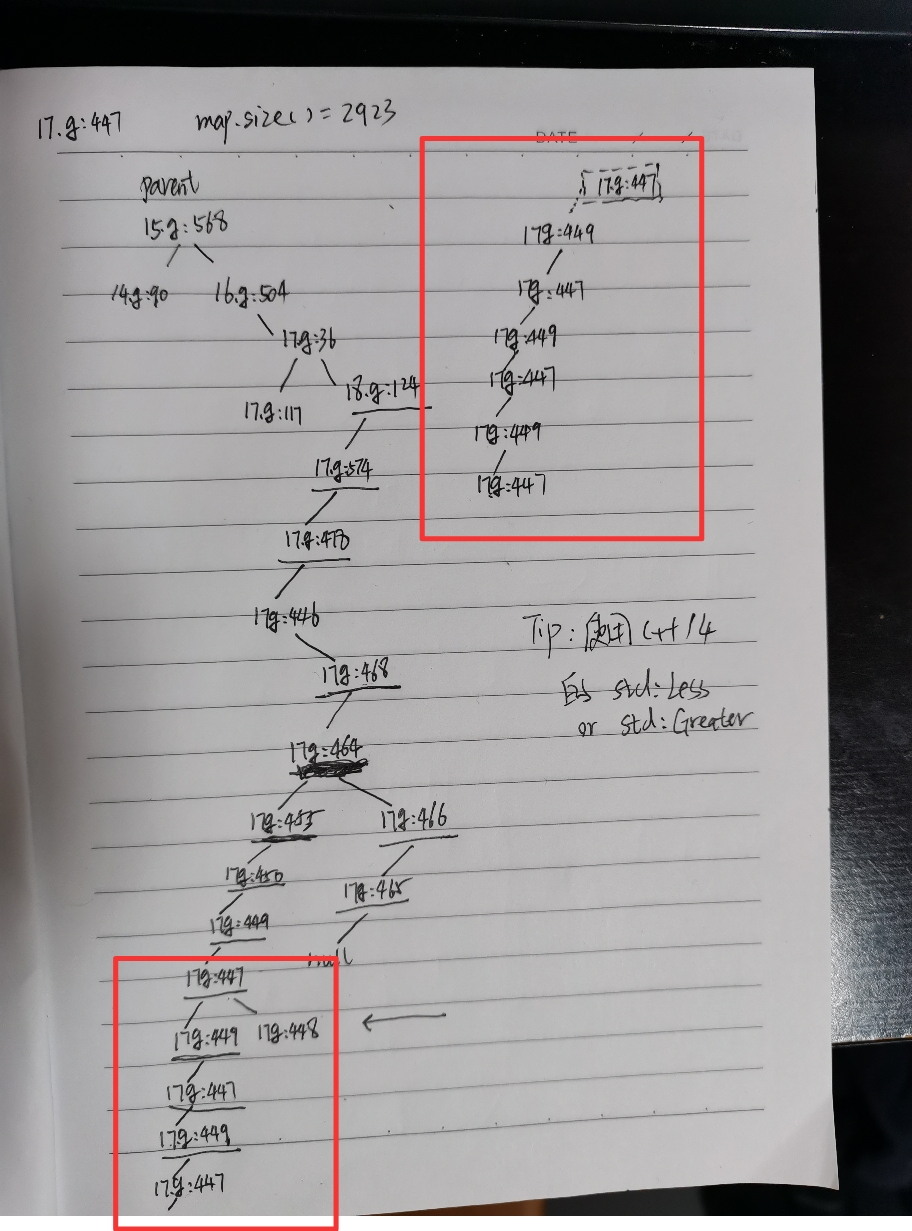 17.g:447 map.size()=2923
DATE
parent
15.g:568
14.g:90 16.g:504
17.g:36
17.g:117 18.g:124
17.g:574
17.g:478
17g:446
17g:468
17g:464
17g:455 17g:466
17g:450 17g:465
17g:449
null
17g:447
17g:449 17g:448
17g:447
17.g:449
17.g:447
17.g:447
17g:449
17g:447
17g:449
17g:447
17g:449
17g:447
Tip: 使用 C++14
的 std::Less
or std::Greater